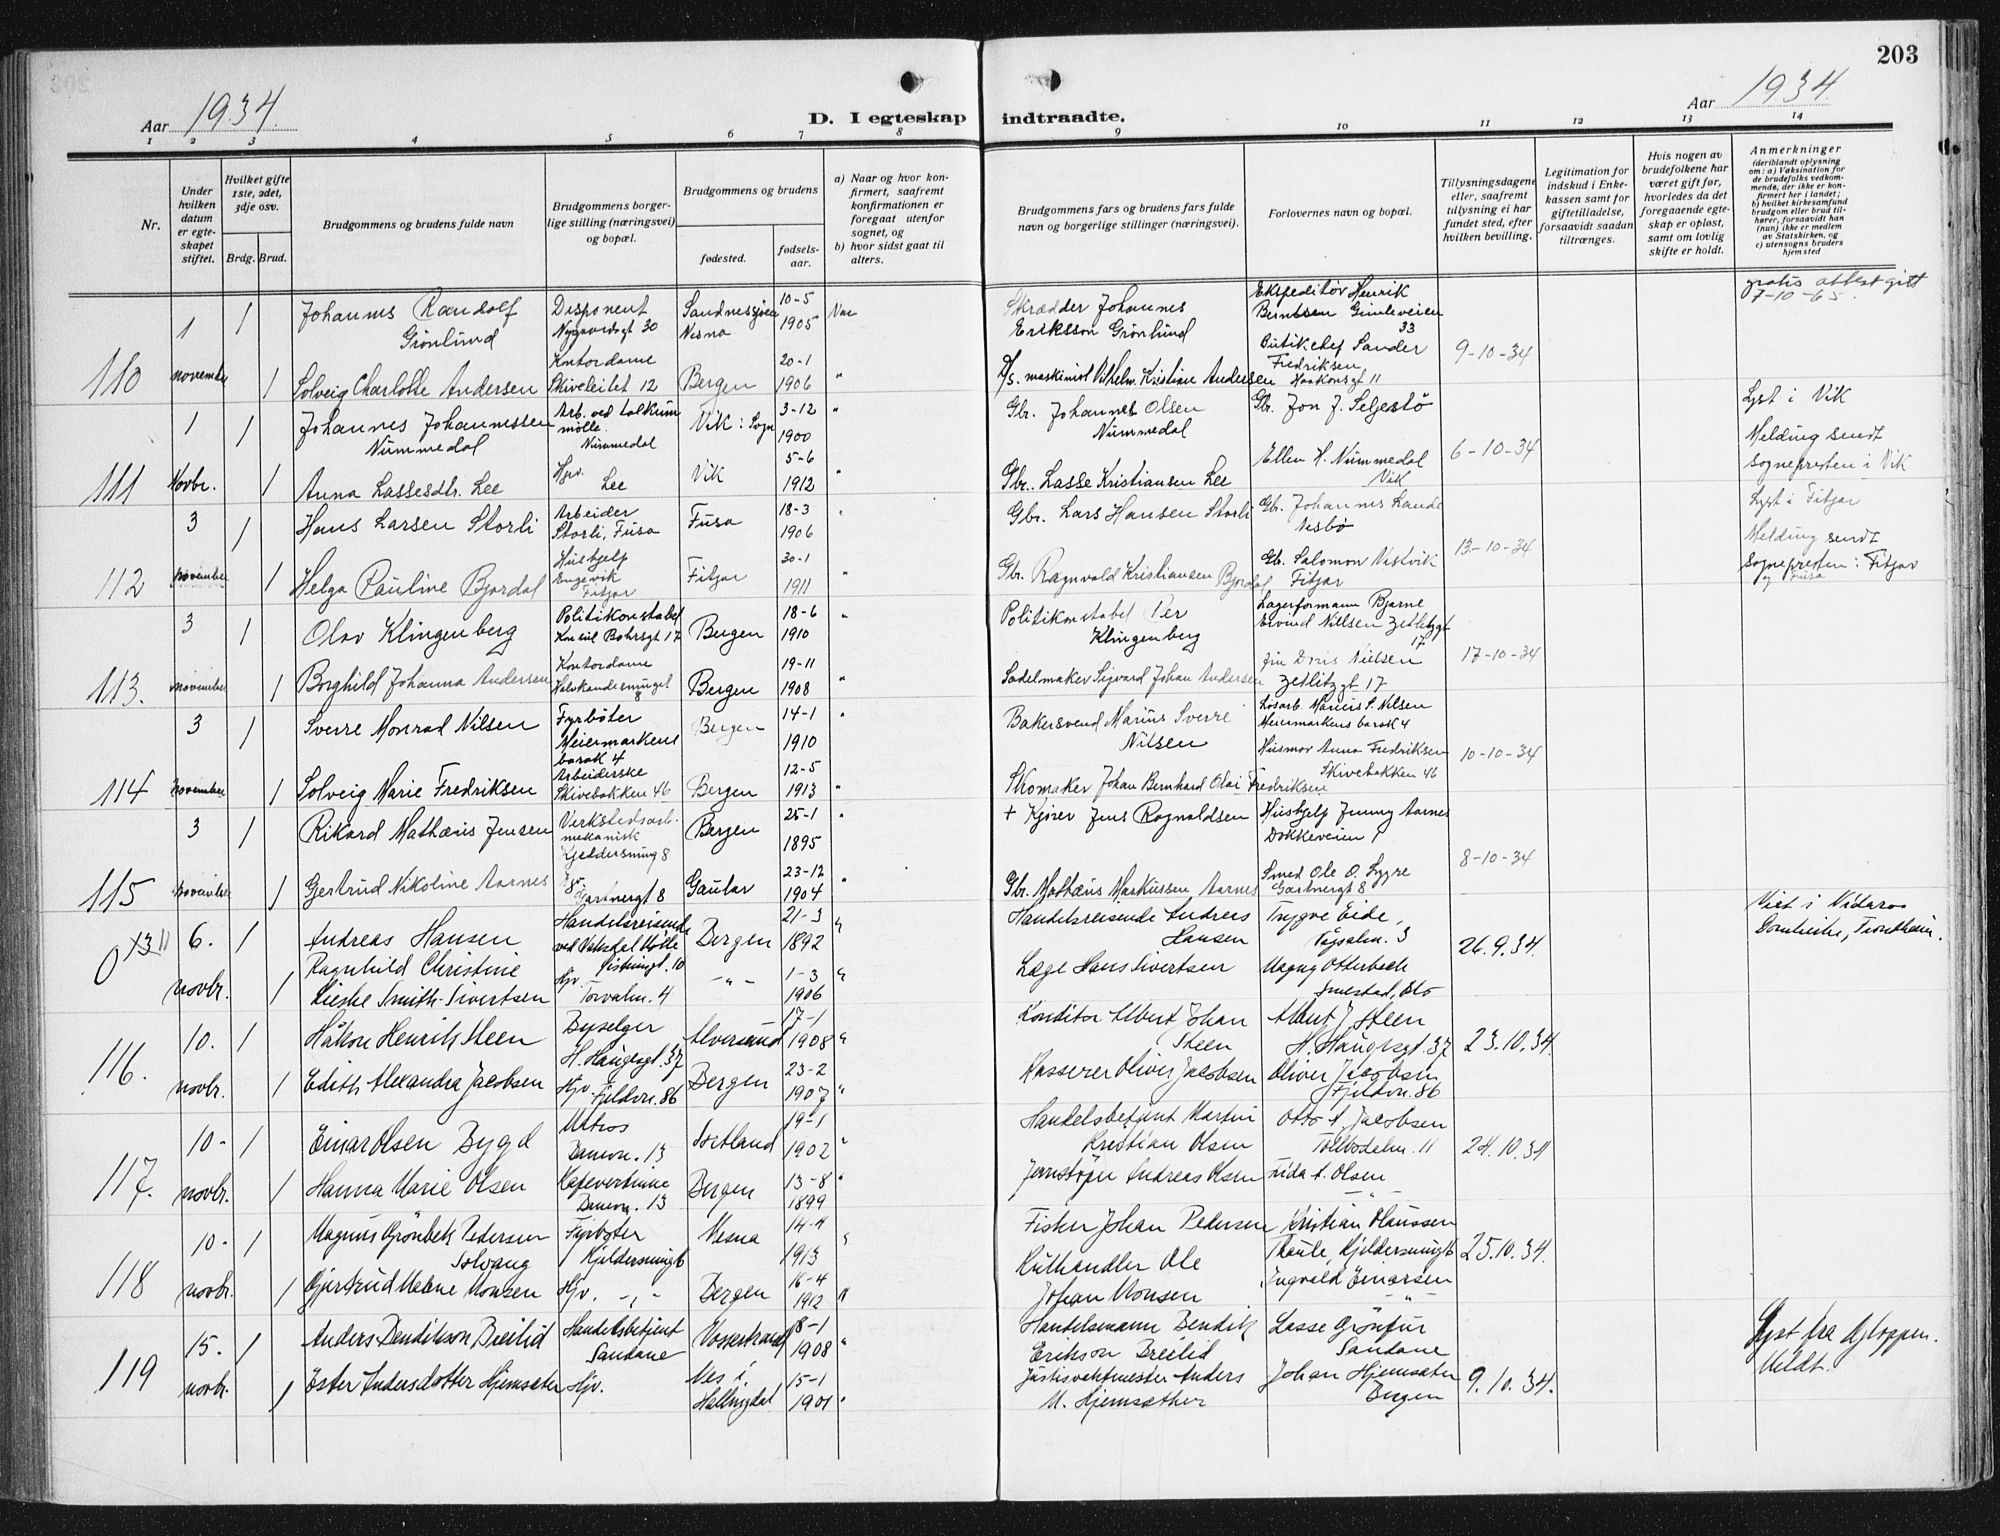 203
Aar 1934.
D. I egteskap indtraadte.
Aar 1934.
1 2 3 4 5 6 7 8 9 10 11 12 13 14
Nr.
Under hvilken datum er egteskapet stiftet.
Hvilket gifte 1ste, 2det, 3dje osv.
Brdg. Brud.
Brudgommens og brudens fulde navn
Brudgommens borgerlige stilling (næringsvei) og bopæl.
Brudgommens og brudens
fødested.
fødselsaar.
a) Naar og hvor konfirmert, saafremt konfirmationen er foregaat utenfor sognet, og
b) hvor sidst gaat til alters.
Brudgommens fars og brudens fars fulde navn og borgerlige stillinger (næringsvei).
Forlovernes navn og bopæl.
Tillysningsdagene eller, saafremt tillysning ei har fundet sted, efter hvilken bevilling.
Legitimation for indskud i Enkekassen samt for giftetilladelse, forsaavidt saadan tiltrænges.
Hvis nogen av brudefolkene har været gift før, hvorledes da det foregaaende egteskap er opløst, samt om lovlig skifte er holdt.
Anmerkninger
(deriblandt oplysning om: a) Vaksination for de brudefolks vedkommende, der ikke er konfirmert her i landet; b) hvilket kirkesamfund brudgom eller brud tilhører, forsaavidt han (hun) ikke er medlem av Statskirken, og c) utensogns bruders hjemsted
110 1 november
1 Johannes Randolf Grönlund Disponent Nygaardsgt 30 Sandnessjöen Nesna 10-5 1905 Skrædder Johannes Eriksson Grönlund Ekspeditör Henrik Berntsen Gimleveien 33 9-10-34 gratis attest gitt 7-10-65.
1 Solveig Charlotte Andersen Kontordame Skiveleitet 12 Bergen 20-1 1906 " D/s. maskinist Vilhelm Kristian Andersen Butikchef Sander Fredriksen Haakonsgt 11
111 1 Novbr.
1 Johannes Johannessen Nummedal Arb. ved talkum mølle. Nummedal Vik i Sogn 3-12 1900 " Gbr. Johannes Olsen Nummedal Gbr. Jon J. Seljestö 6-10-34 Lyst i Vik Melding sendt sognepresten i Vik
1 Anna Lassesdtr. Lee Hjv. Lee Vik 5-6 1912 " Gbr. Lasse Kristiansen Lee Ellen H. Nummedal Vik
112 3 november
1 Hans Larsen Storli Arbeider Storli, Fusa Fusa 18-3 1906 " Gbr. Lars Hansen Storli Gb. Johannes Lande Nesbö 13-10-34 Lyst i Fitjar Melding sendt sognepresten i Fitjar og Fusa
1 Helga Pauline Bjordal Hushjelp Engevik Fitjar Fitjar 30-1 1911 " Gbr. Ragnvald Kristiansen Bjordal Gb. Salomon Vestvik Fitjar
113. 3 november
1 Olav Klingenberg Politikonstabel Konsul Børhsgt 17 Bergen 18-6 1910 " Politikonstabel Per Klingenberg Lagerformann Bjarne Eivind Nielsen Zetlitzgt 17 17-10-34
1 Borghild Johanna Andersen Kontordame Halvkandesmuget 8 Bergen 19-11 1908 " Sadelmaker Sigvard Johan Andersen Fru Doris Nielsen Zetlitzgt 17
114 3 november
1 Sverre Monrad Nilsen Fyrböter Meiermarkens barak 4 Bergen 14-1 1910 " Bakersvend Marius Sverre Nilsen Løsarb. Marius S. Nilsen Meiermarkens barak 4 10-10-34
1 Solveig Marie Fredriksen Arbeiderske Skivebakken 46 Bergen 12-5 1913 " Skomaker Johan Bernhard Olai Fredriksen Husmor Anna Fredriksen Skivebakken 46
115 3 november
1 Rikard Mathæus Jensen Verkstedsarb. mekanisk Kjeldersmug 8 Bergen 25-1 1895 " + Kjører Jens Ragnaldsen Hushjelp Jenny Aarnes Dokkeveien 1 8-10-34
1 Gertrud Nikoline Aarnes Gartnergt 8 Gaular 23-12 1904 " Gbr. Mathæus Markussen Aarnes Smed Ole O. Lygre Gartnergt 8
0 13/11 6. novbr.
1 Andreas Hansen Handelsreisende ved Vaksdal Mölle Bergen 21-3 1892 " Handelsreisende Andreas Hansen Trygve Eide, Vågsalm. 3 26.9.34. Viet i Nidaros Domkirke, Trondheim.
1 Ragnhild Christine Lieske Smith-Sivertsen Hjv. Torvalm. 4 - " - 1-3 1906 " Læge Hans Sivertsen Magny Otterbech Smestad, Oslo
116. 10. novbr.
1 Håkon Henrik Steen Byselger H. Haugesgt. 37 Alversund 17-1 1908 " Konditor Albert Johan Steen Albert J. Steen H. Haugesgt. 37 23.10.34.
1 Edith Alexandra Jacobsen Hjv. Fjeldvn. 86 Bergen 23-2 1907 " Kasserer Oliver Jacobsen Oliver Jacobsen Fjeldvn. 86
117. 10- novbr.
1 Einar Olsen Bygd Matros Damvn. 13 Sortland 19-1 1902 " Handelsbetjent Martin Kristian Olsen Otto A. Jacobsen Tollbodalm. 11 24.10.34
1 Hanna Marie Olsen Kafevertinne Damvn. 13 Bergen 13-8 1899 " Jernstöper Andreas Olsen Frida A. Olsen - " -
118 10- novbr.
1 Magnus Grönbek Pedersen Solvang Fyrböter Kjeldersmugt Nesna 14-4 1913 " Fisker Johan Pedersen Kristian Olaussen Thaule, Kjeldersmugt 25.10.34.
1 Gjertrud Helene Monsen Hjv. - " - Bergen 16-4 1912 " Kulhandler Ole Johan Monsen Ingvald Einarsen - " -
119 15. novbr.
1 Anders Bendikson Breilid Handelsbetjent Sandane Vossestrand 8-1 1908 " Handelsmann Bendik Erikson Breilid Lasse Grönfur Sandane 9.10.34. Lyst fra Gloppen. Meldt.
1 Ester Andersdotter Hjemsæter Hjv. Nes i Hallingdal 15-1 1901 " Justisvaktmester Anders M. Hjemsæther Johan Hjemsæter Bergen